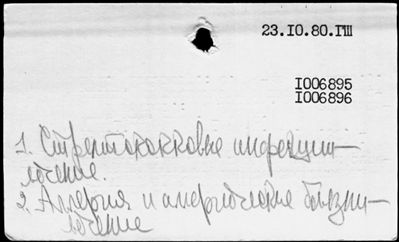 23.10.80.ГШ
1006895
1006896
1. Стрептококковые инфекции —
лечение.
2. Аллергия и аллергические болезни —
лечение